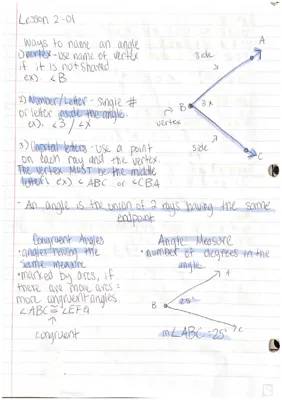 Lesson 2-01
Ways to name an angle
1) vertex - use name of vertex
if it is not shared
ex) ∠B
2) Number/Letter - single #
or letter inside the angle.
ex). ∠3 / ∠x
3) Capital letters - use a point
on each ray and the vertex.
The vertex MUST be the middle
letter! ex) ∠ABC or ∠CBA
side
A
B
3 x
vertex
side
C
- An angle is the union of 2 rays having the same
endpoint
Congruent Angles
• angles having the
same measure
• marked by arcs, if
there are more arcs =
more congruent angles
∠ABC ≅ ∠EFG
congruent
Angle Measure
• number of degrees in the
angle
A
B
25°
C
m∠ABC = 25°